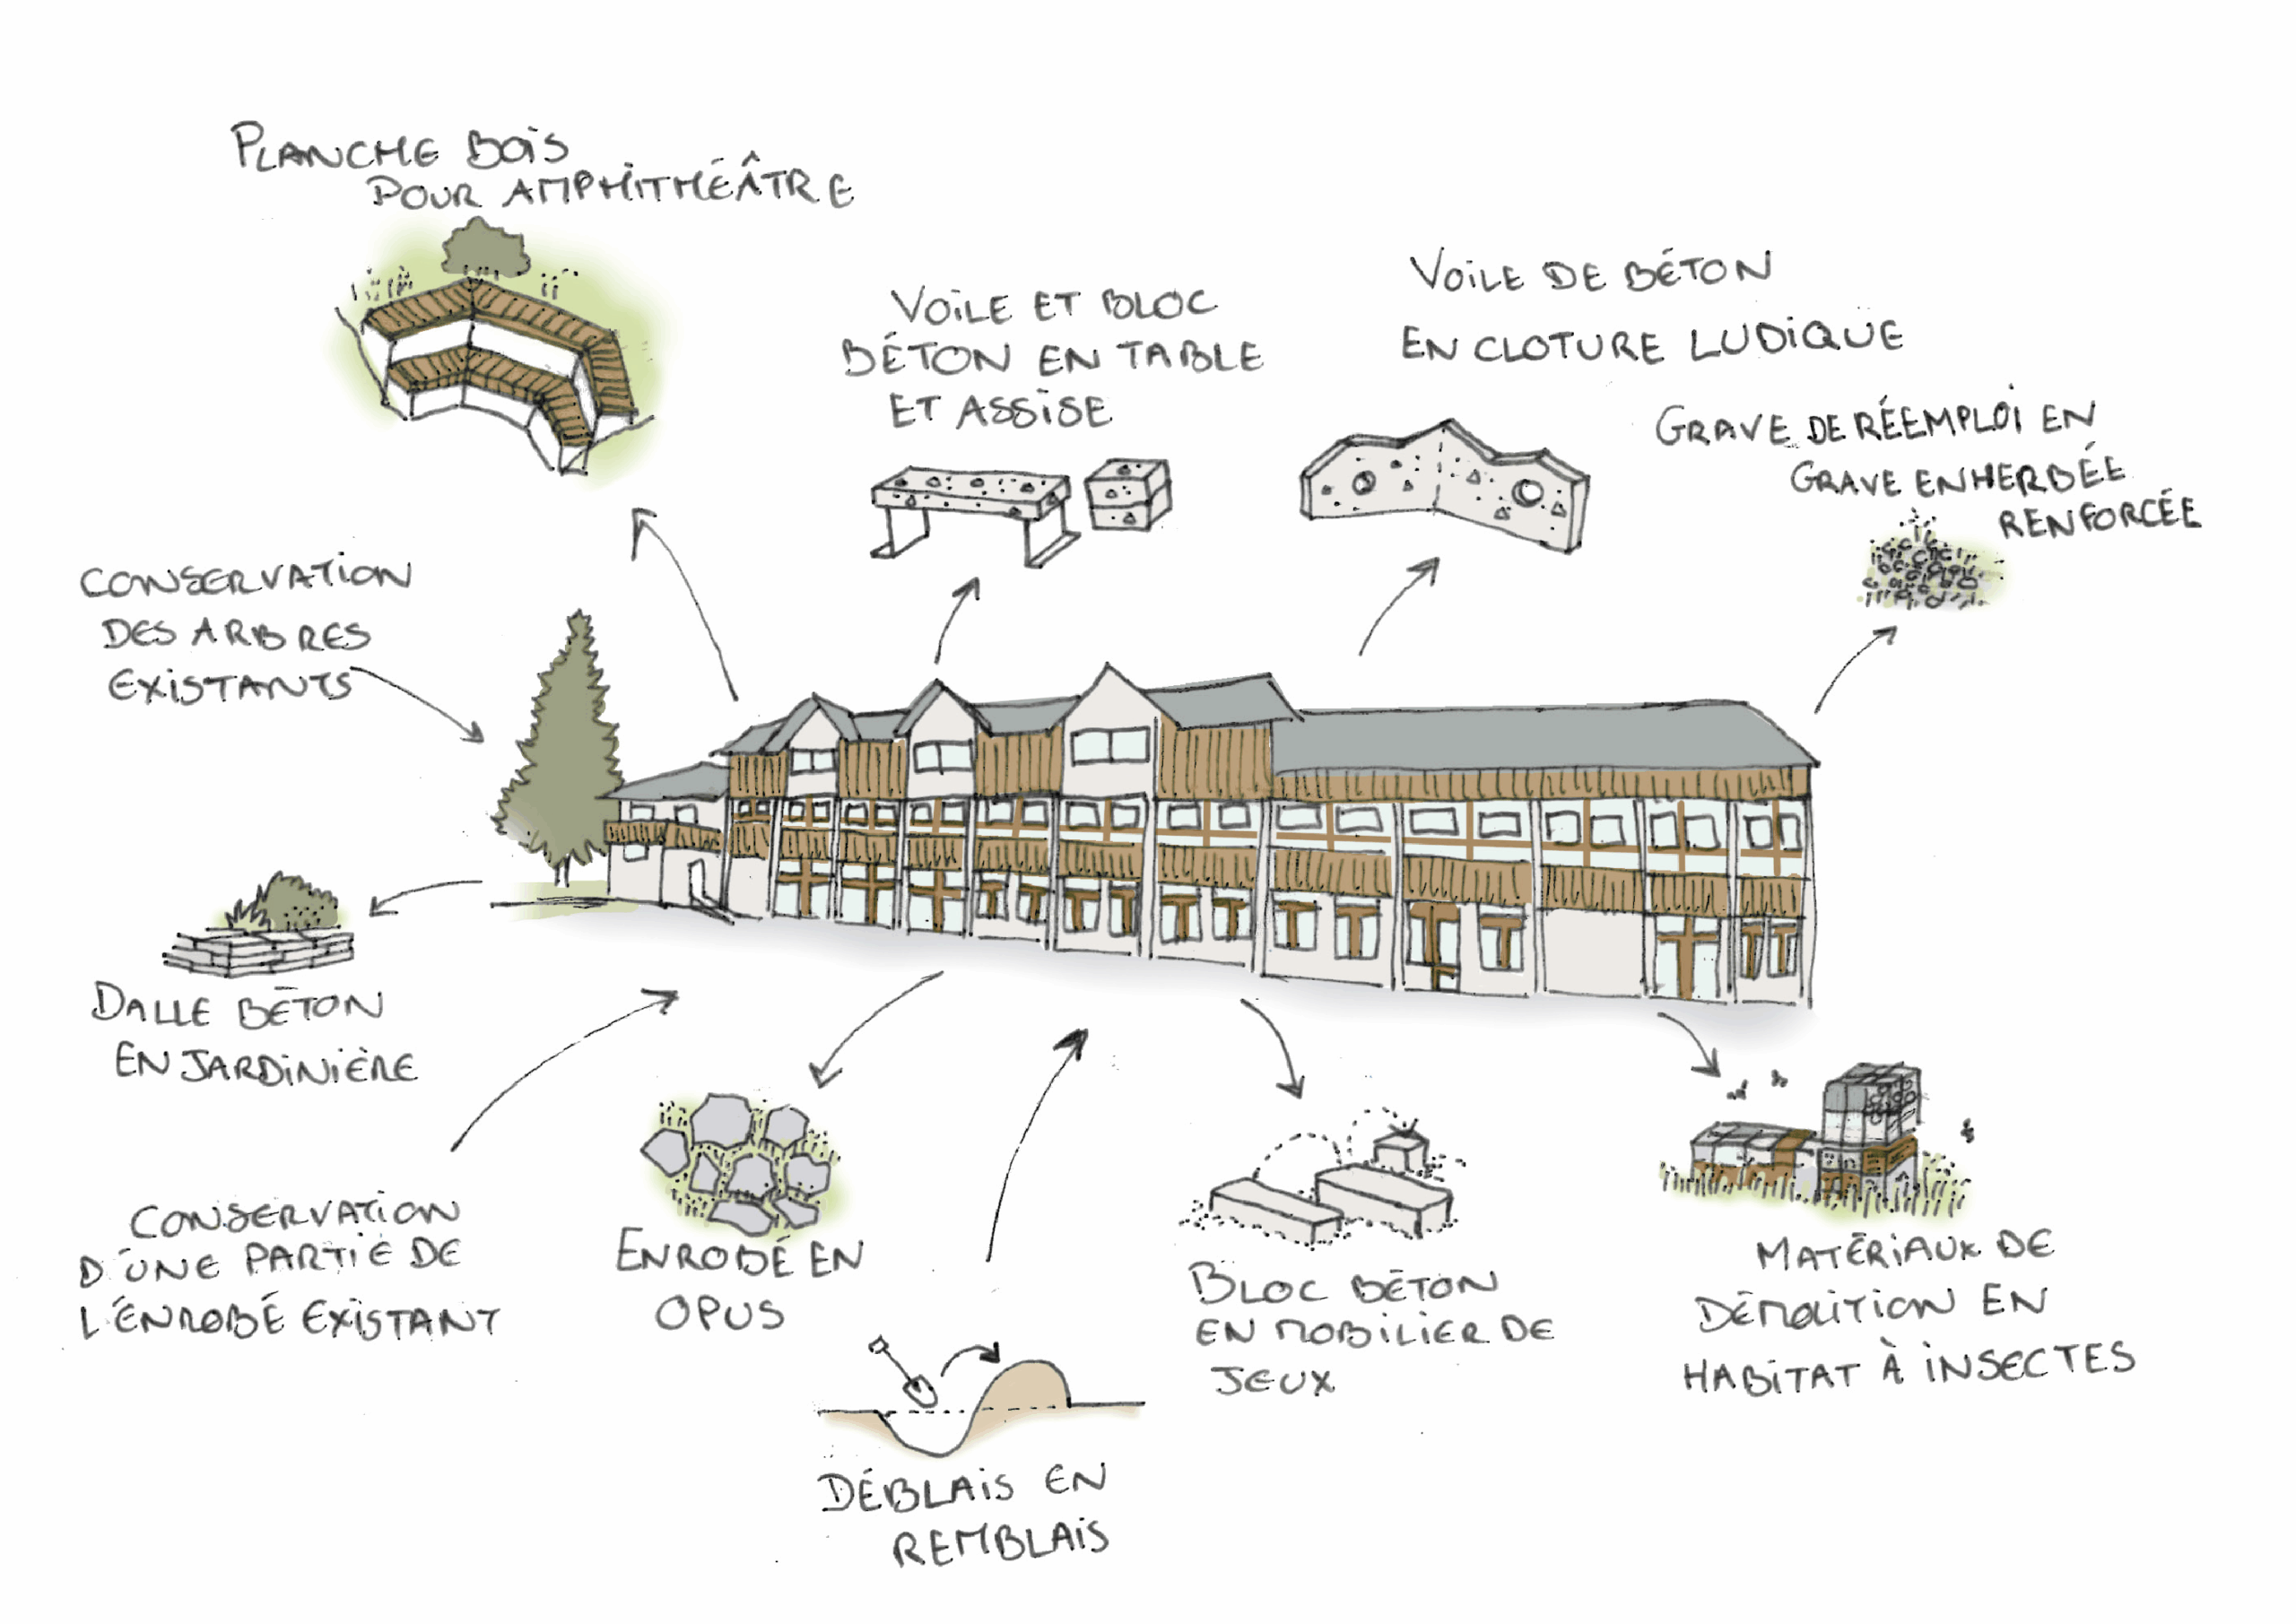 PLANCHE BOIS
POUR AMPHITHÉÂTRE
VOILE ET BLOC
BÉTON EN TABLE
ET ASSISE
VOILE DE BÉTON
EN CLOTURE LUDIQUE
GRAVE DE RÉEMPLOI EN
GRAVE ENHERBÉE
RENFORCÉE
CONSERVATION
DES ARBRES
EXISTANTS
DALLE BÉTON
EN JARDINIÈRE
CONSERVATION
D'UNE PARTIE DE
L'ENROBÉ EXISTANT
ENROBÉ EN
OPUS
DÉBLAIS EN
REMBLAIS
BLOC BÉTON
EN MOBILIER DE
JEUX
MATÉRIAUX DE
DÉMOLITION EN
HABITAT À INSECTES